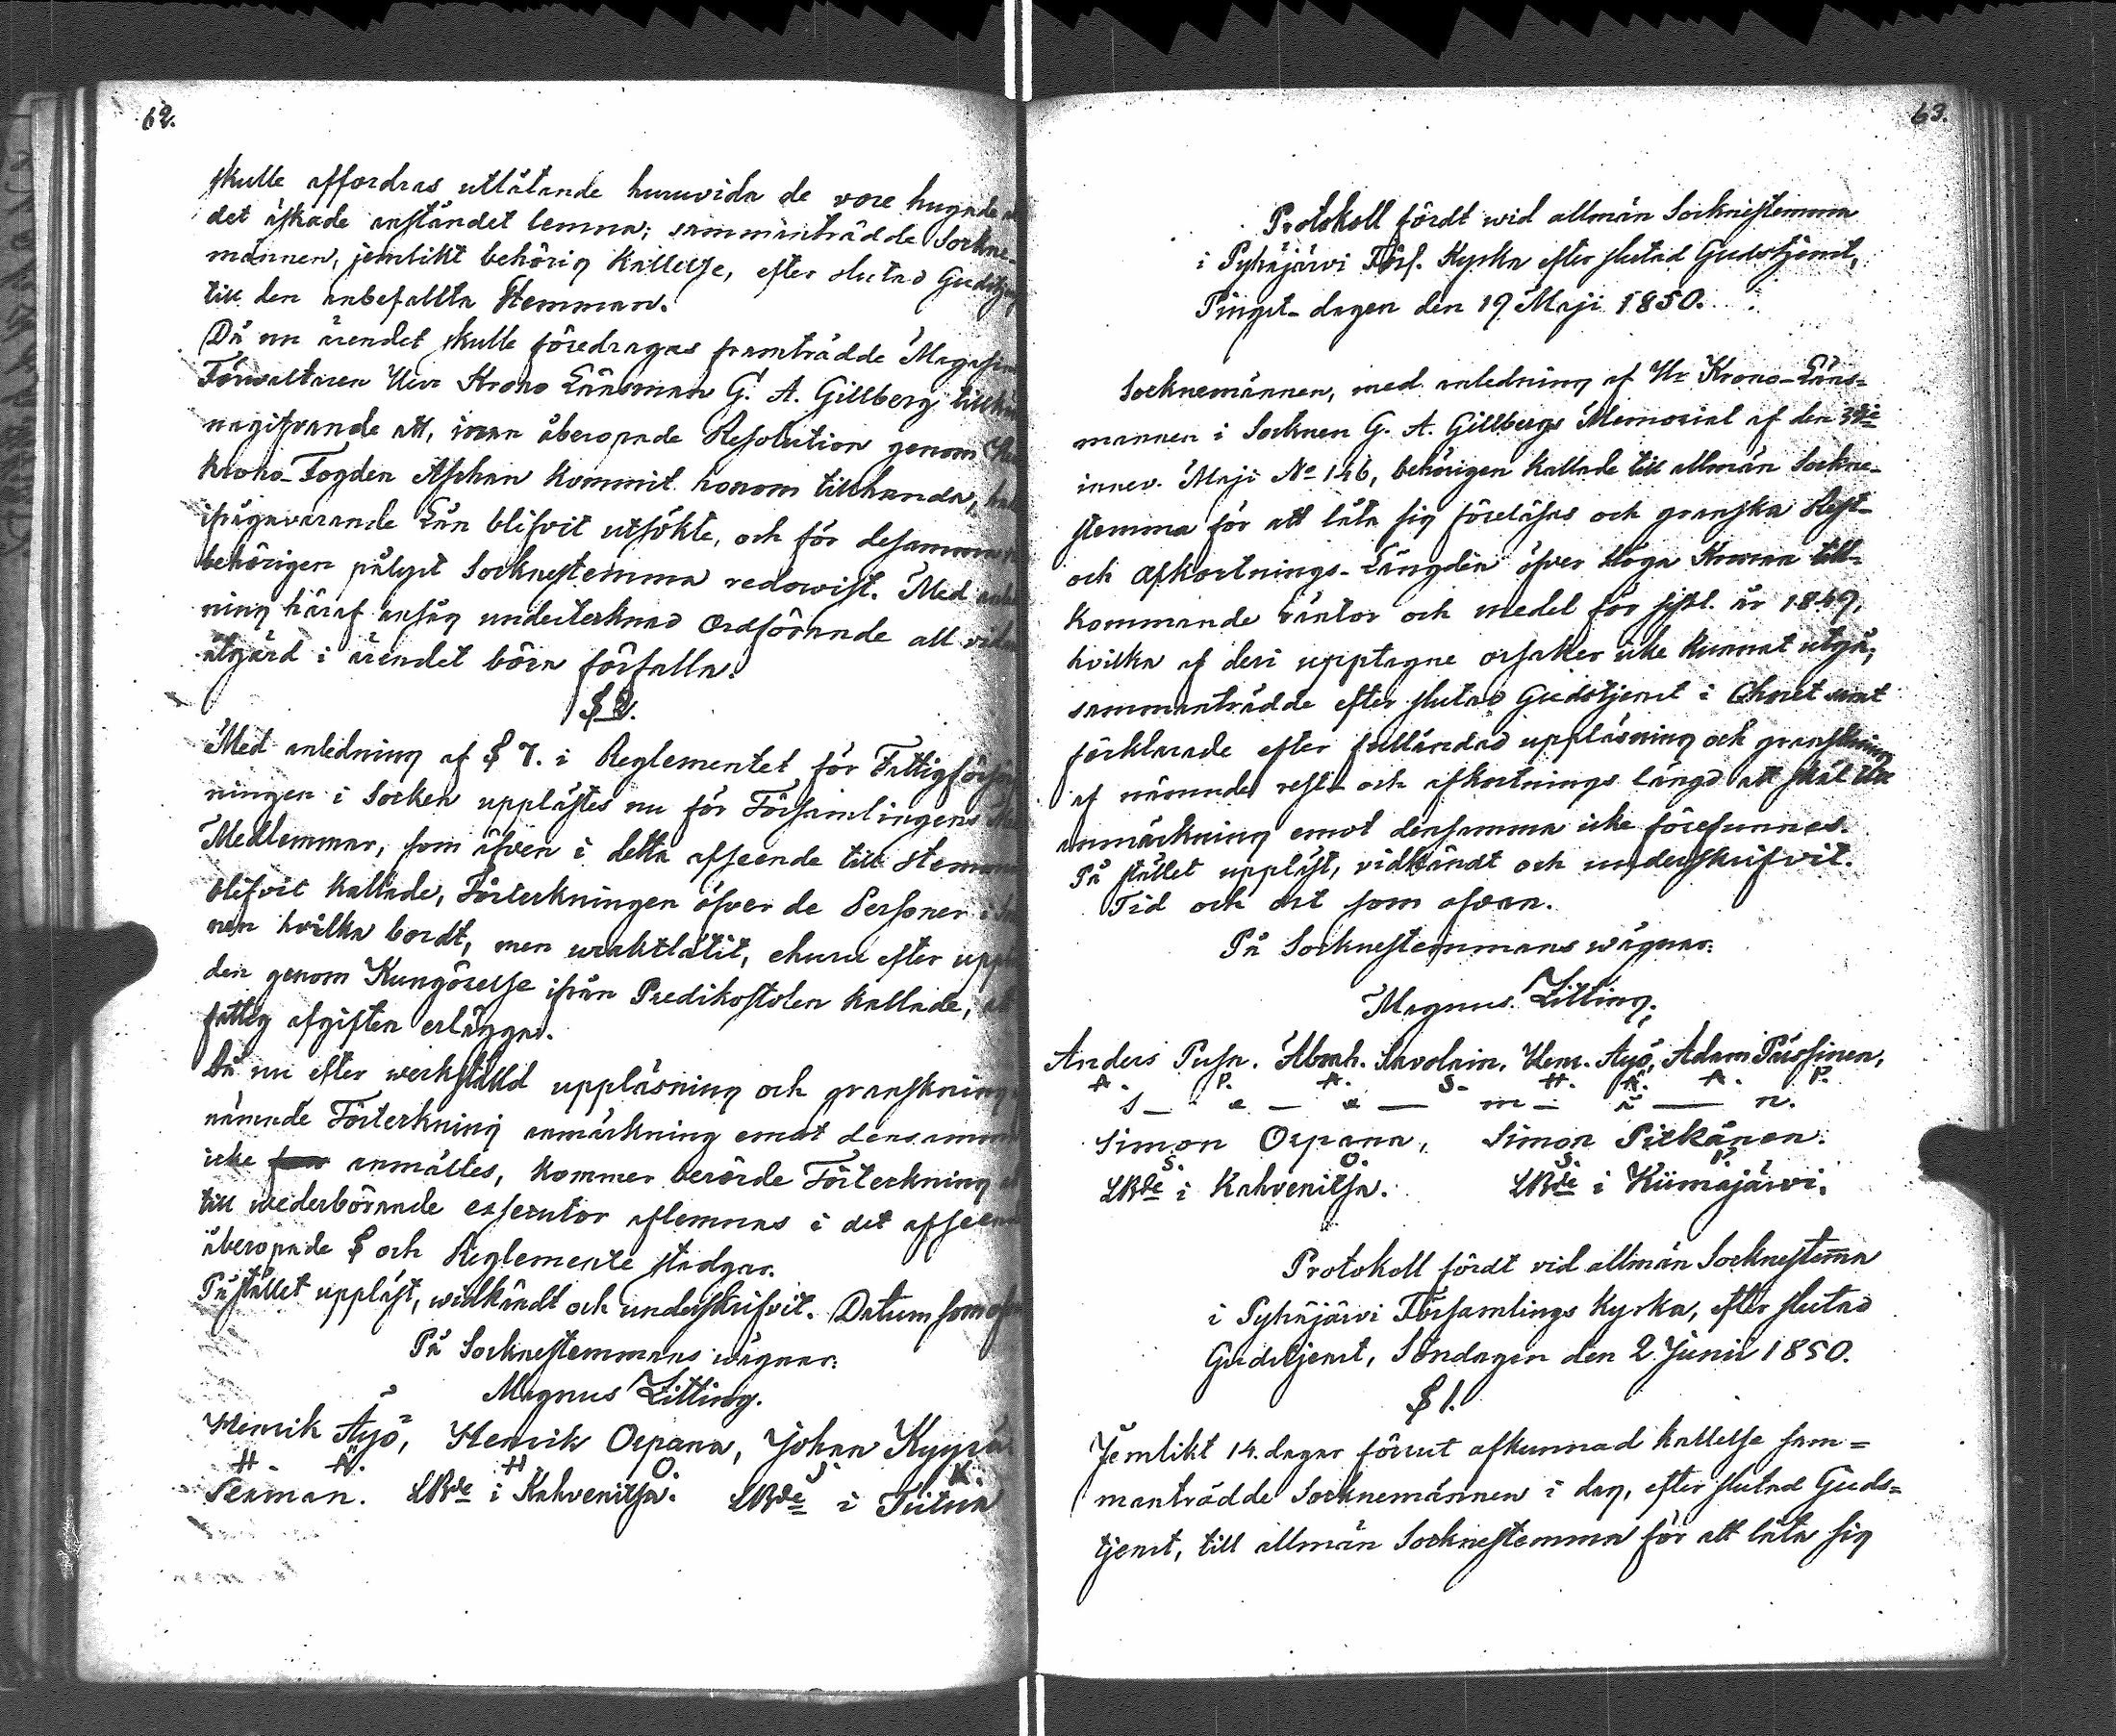 62.
skulle affordras utlåtande huruvida de vore hugade
det äskade anståndet lemna; sammanträdde Sockne-
männen, jemlikt behörig kallelse, efter slutad Gudstj
till den anbefallta Stemman.
Då nu ärendet skulle föredragas framträdde Magasins
Förvaltaren Herr Krono Länsman G. A. Gillberg
nagifvande att, innan åberopade Resolution genom
Krono-Fogden Asphan kommit honom tillhanda,
ifrågavarande Lån blifvit utsökte, och för desamma
behörigen pålyst Socknestemma redowist. Med
ning häraf ansåg undertecknad Ordförande all vidare
åtgärd i ärendet böra förfalla.
§ 2.
Med anledning af § 7. i Reglementet för Fattigförsörj
ningen i Socken upplästes nu för Församlingens
Medlemmar, som äfven i detta afseende till Stemman
blifvit kallade, Förteckningen öfver de Personer i
nen hvilka bordt, men uraktlåtit, ehuru efter
den genom Kungörelse ifrån Predikostolen kallade,
fattig afgiften erlägga.
Då nu efter werkställd uppläsning och granskning
nämnde Förteckning anmärkning emot densamma
icke anmältes, kommer berörde Förteckning
till wederbörande exsecutor aflemnas i det afseende
åberopade § och Reglemente stadgar.
På stället uppläst, widkändt och underskrifvit. Datum som ofvan
På Socknestemmans wägnar:
Magnus Litting.
Henrik Äyö, Henrik Orpana, Johan Kyyrä
H. Ä. H O. J K.
Sexman. LBde i Kahvenitsa. LBde i Tiitua
63.
Protokoll fördt wid allmän Socknestemma
i Pyhäjärvi Förs. Kyrka efter slutad Gudstjenst,
Pingst-dagen den 19 Maji 1850.
Socknemännen, med anledning af Hr Krono-Läns-
mannen i Socknen G. A. Gillbergs Memorial af den 3die
innev. Maji No 146, behörigen kallade till allmän Sockne-
stemma för att låta sig föreläsas och granska Rest-
och Afkortnings-Längden öfver Höga Kronan till-
kommande räntor och medel för sistl. år 1849,
hvilka af deri upptagne orsaker icke kunnat utgå;
sammanträdde efter slutad Gudstjenst i Choret samt
förklarade efter fulländad uppläsning och granskning
af nämnde rest- och afkortnings längd att skäl till
anmärkning emot densamma icke förefunnes.
På stället uppläst, vidkändt och underskrifvit.
Tid och ort som ofvan.
På Socknestemmans wägnar:
Magnus Litting.
Anders Pusa. Abrah. Savolain, Henr. Äyö, Adam Pärssinen,
A. P. A. S. H. Ä. A. P.
S — e — x — m — ä — n.
Simon Orpana, Simon Pitkänen.
S. O. S. P.
LBde i Kahvenitsa. LBde i Kiimajärvi.
Protokoll fördt vid allmän Socknestemma
i Pyhäjärvi Församlings Kyrka, efter slutad
Gudstjenst, Söndagen den 2 Junii 1850.
§ 1.
Jemlikt 14. dagar förrut afkunnad kallelse sam=
manträdde Socknemännen i dag, efter slutad Guds=
tjenst, till allmän Socknestemma för att låta sig